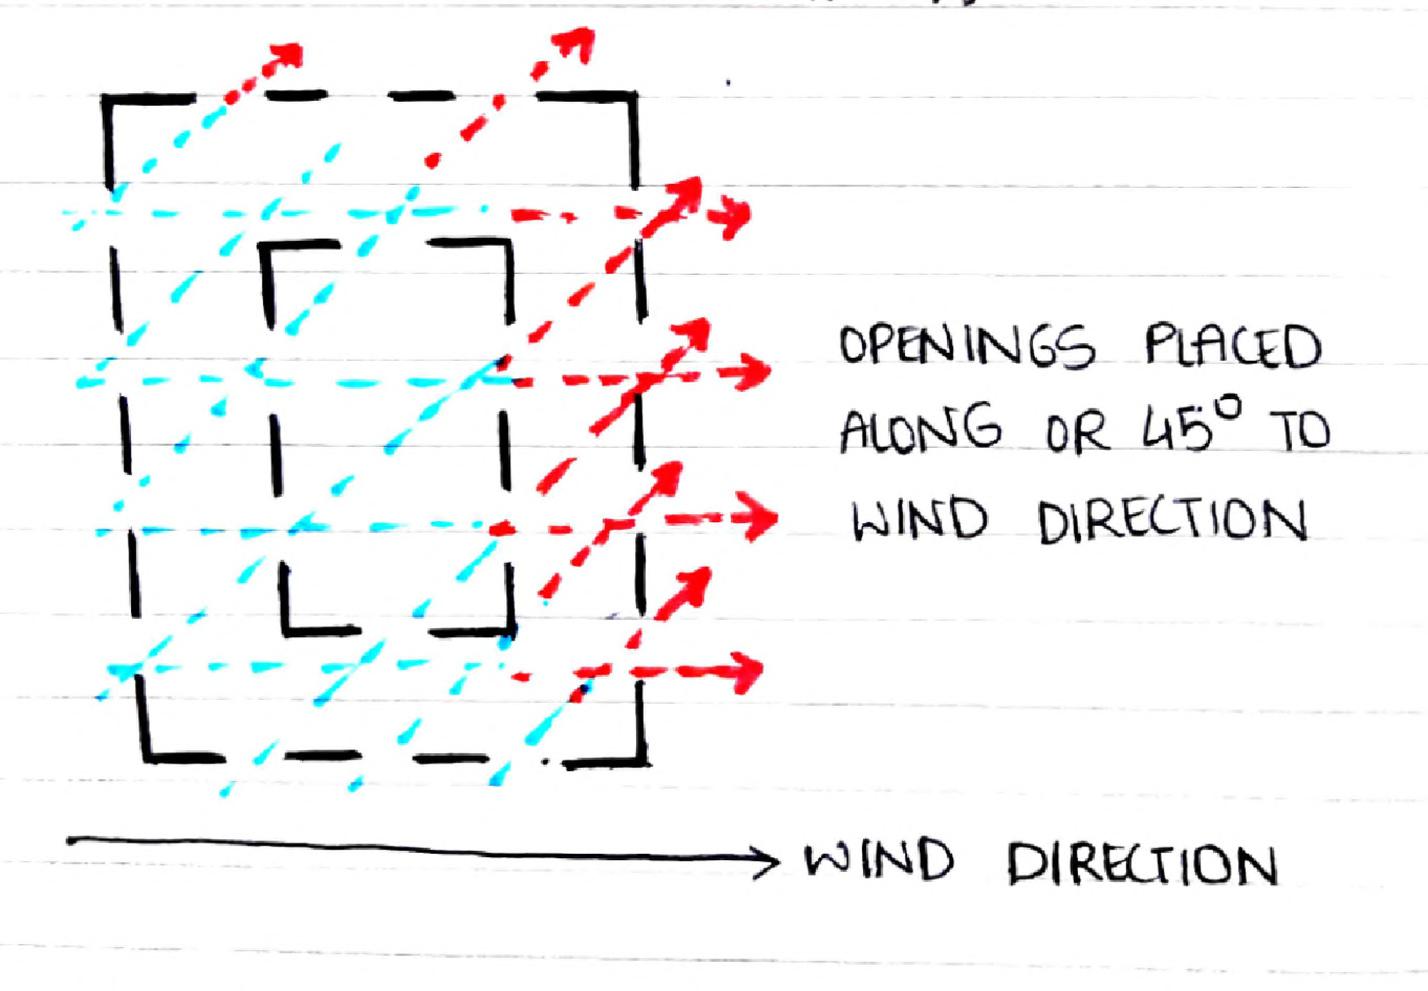 OPENINGS PLACED
ALONG OR 45° TO
WIND DIRECTION
WIND DIRECTION